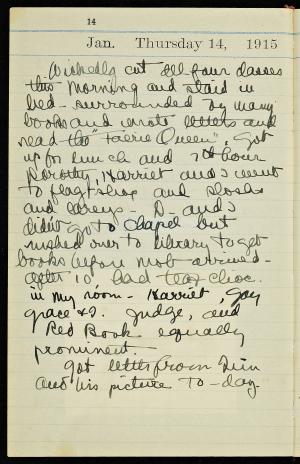 14
Jan. Thursday 14, 1915
Wickedly cut all four classes
this morning and staid in
bed - surrounded by many
books and wrote letters and
read the "Faerie Queen". Got
up for lunch and 7th hour
Dorothy, Harriet and I went
to Flagstop and Slosh
and Careys - D- and I
didn't go to chapel but
rushed over to library to get
books before mob arrived -
after 10' had tea, choc.
in my room - Harriet, Joy
Grace & I. Judge, and
Red Book equally
prominent.
Got letter from Jim
and his picture to-day.